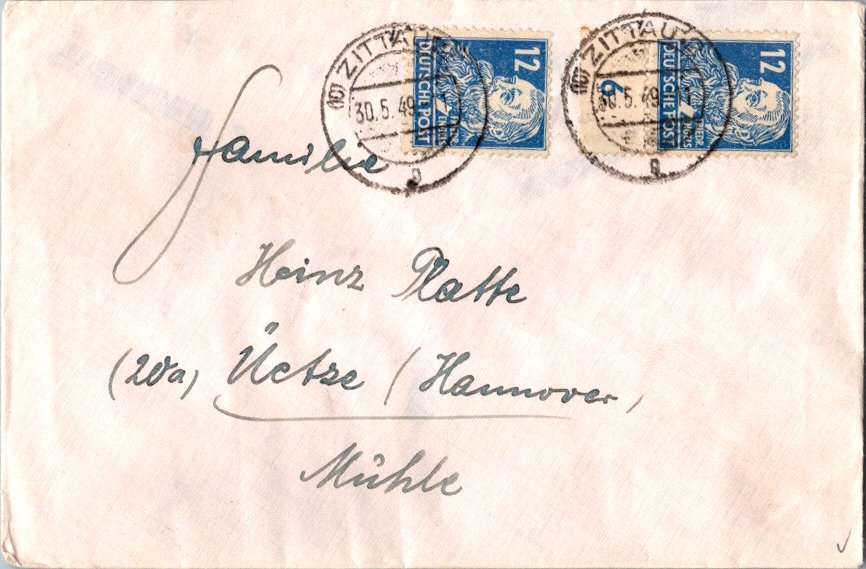 (10) ZITTAU
30.5.49
g
12
DEUTSCHE POST
(10) ZITTAU
30.5.49
g
12
DEUTSCHE POST
Familie
Heinz Platte
(20a) Üetze (Hannover)
Mühle